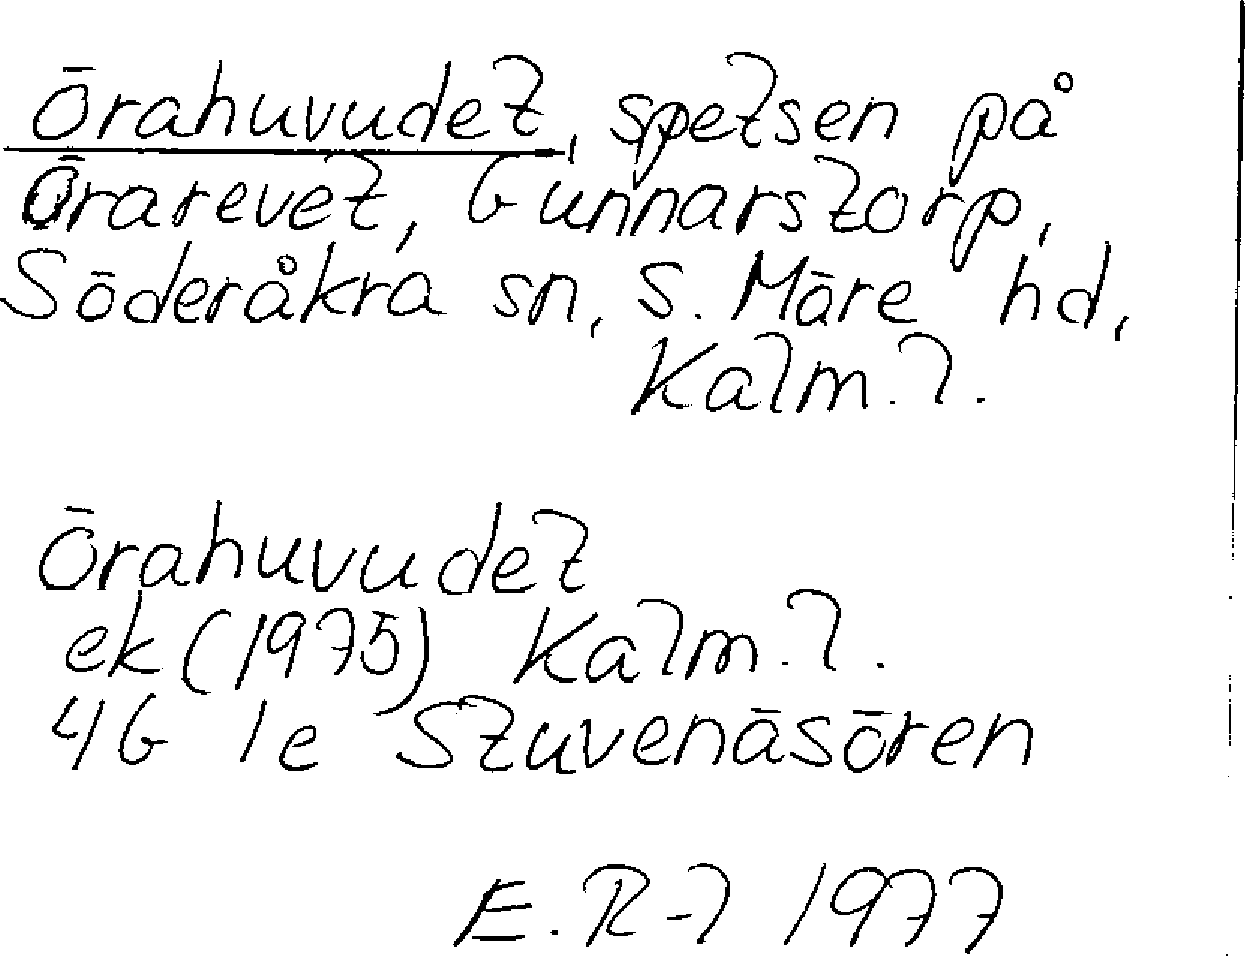 Örahuvudet, spetsen på
Örarevet, Gunnarstorp,
Söderåkra sn, S. Möre hd,
Kalm. l.
Örahuvudet
ek (1975) Kalm. l.
4G 1e Stuvenäsören
E. R-l 1977